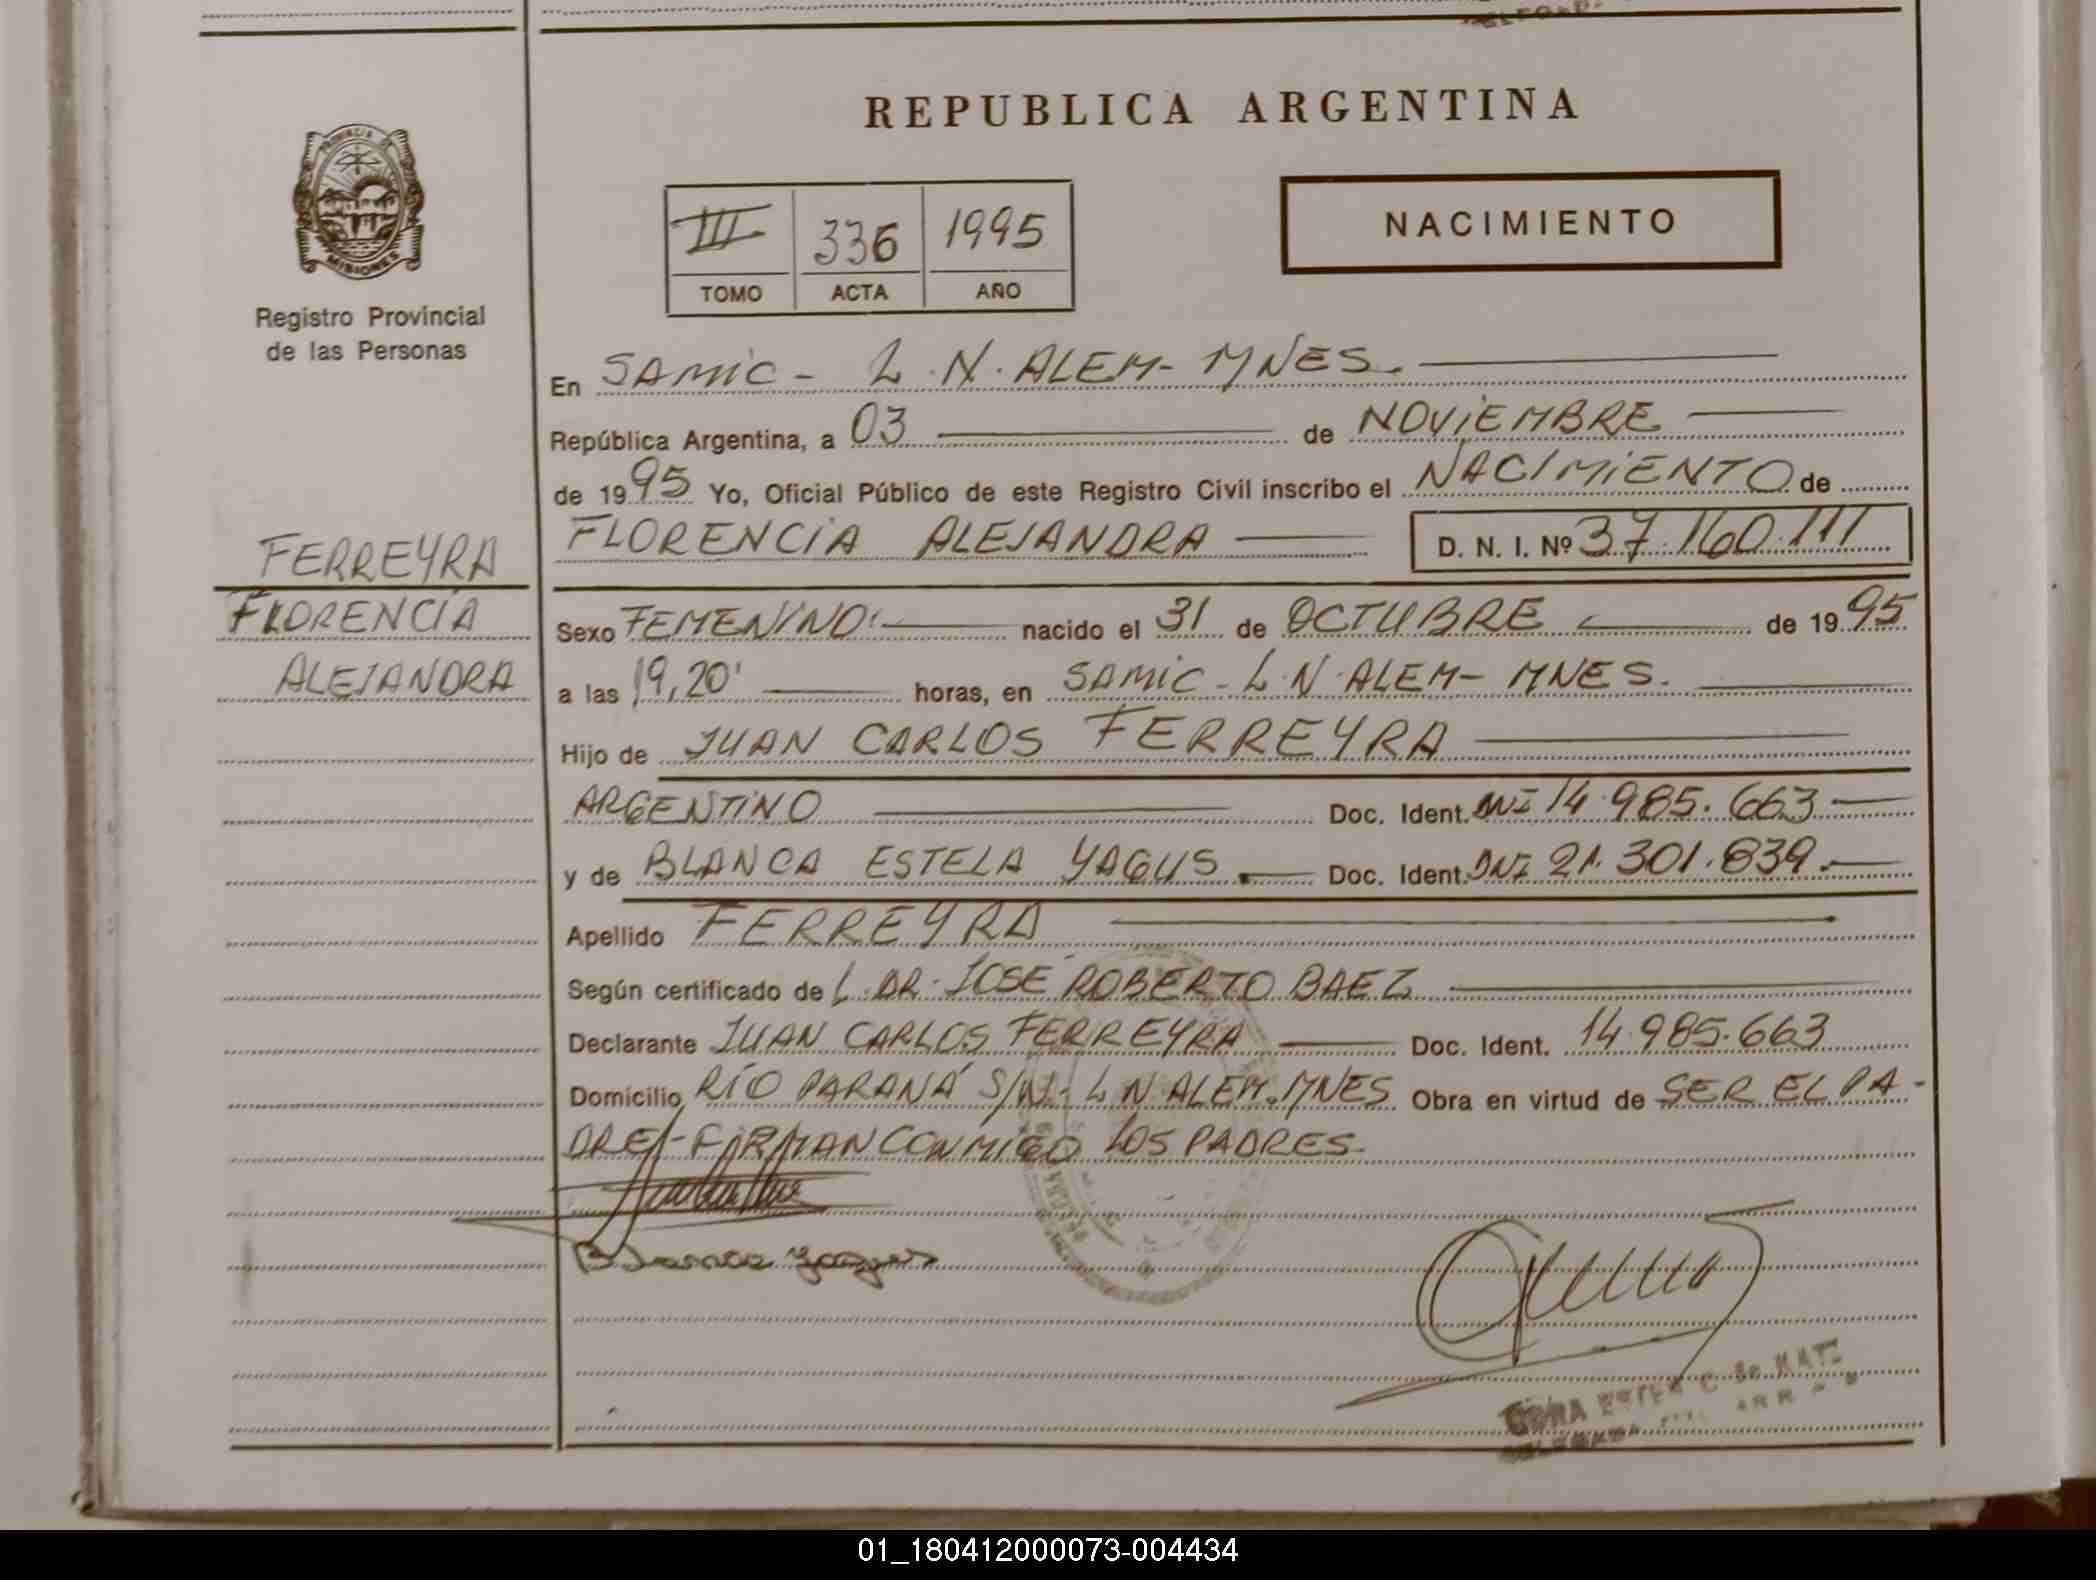 REPUBLICA ARGENTINA
PROVINCIA DE
MISIONES
Registro Provincial
de las Personas
III 336 1995
TOMO ACTA AÑO
NACIMIENTO
En SAMIC - L.N. ALEM - MNES.
República Argentina, a 03 de NOVIEMBRE
de 1995 Yo, Oficial Público de este Registro Civil inscribo el NACIMIENTO de
FLORENCIA ALEJANDRA D. N. I. Nº 37.160.111
FERREYRA
FLORENCIA
ALEJANDRA
Sexo FEMENINO nacido el 31 de OCTUBRE de 1995
a las 19,20' horas, en SAMIC - L.N. ALEM - MNES.
Hijo de JUAN CARLOS FERREYRA
ARGENTINO Doc. Ident. DNI 14.985.663
y de BLANCA ESTELA YAGUS Doc. Ident. DNI 21.301.839.
Apellido FERREYRA
Según certificado de L. DR. JOSE ROBERTO BAEZ
Declarante JUAN CARLOS FERREYRA Doc. Ident. 14.985.663
Domicilio RÍO PARANÁ S/N - L N ALEM. MNES Obra en virtud de SER EL PA-
DRE - FIRMAN CONMIGO LOS PADRES.
Blanca Yagus
ESTER C. de
01_180412000073-004434